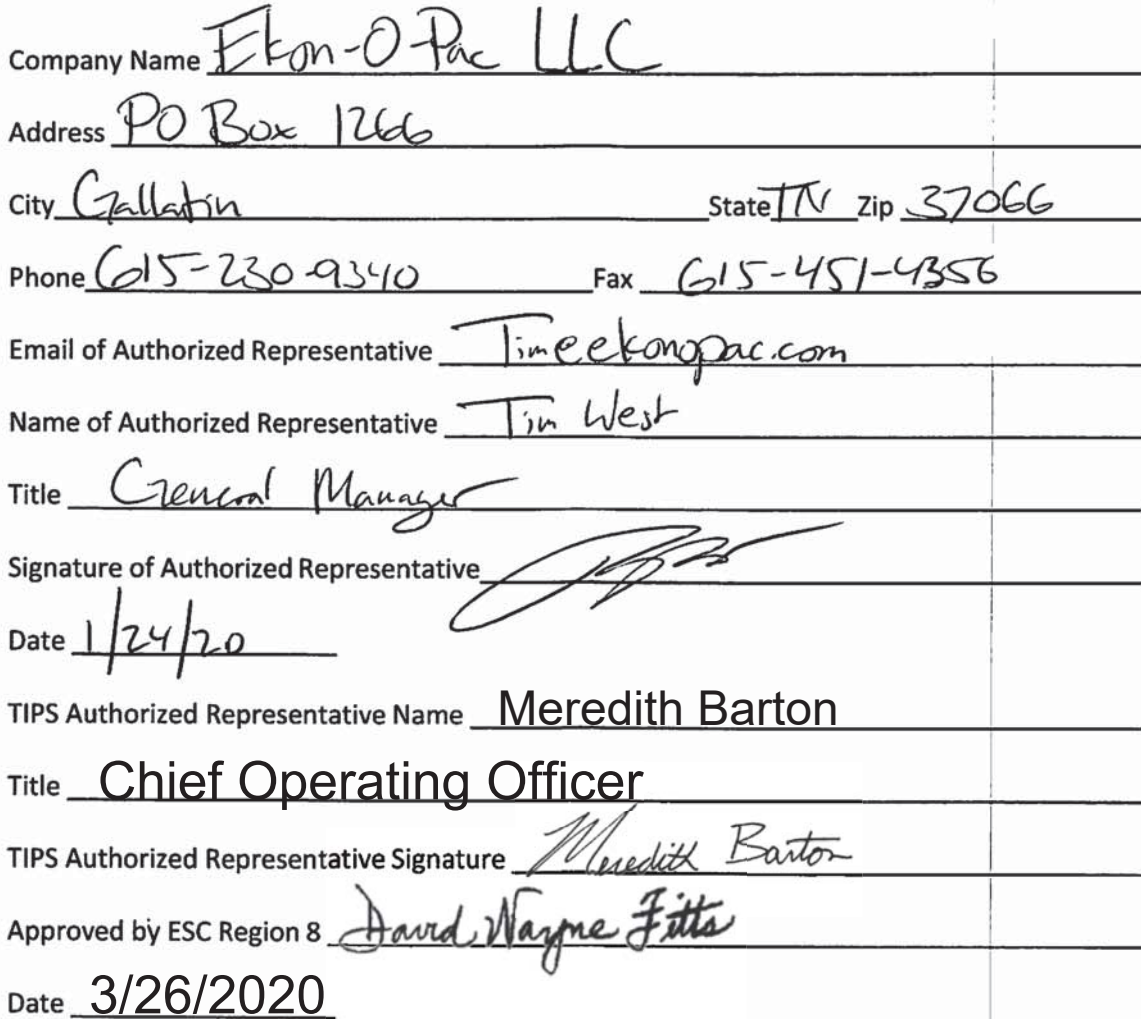 Company Name Ekon-O-Pac LLC
Address PO Box 1266
City Gallatin State TN Zip 37066
Phone 615-230-9340 Fax 615-451-4356
Email of Authorized Representative Tim@ekonopac.com
Name of Authorized Representative Tim West
Title General Manager
Signature of Authorized Representative
Date 1/24/20
TIPS Authorized Representative Name Meredith Barton
Title Chief Operating Officer
TIPS Authorized Representative Signature Meredith Barton
Approved by ESC Region 8 David Wayne Fitts
Date 3/26/2020